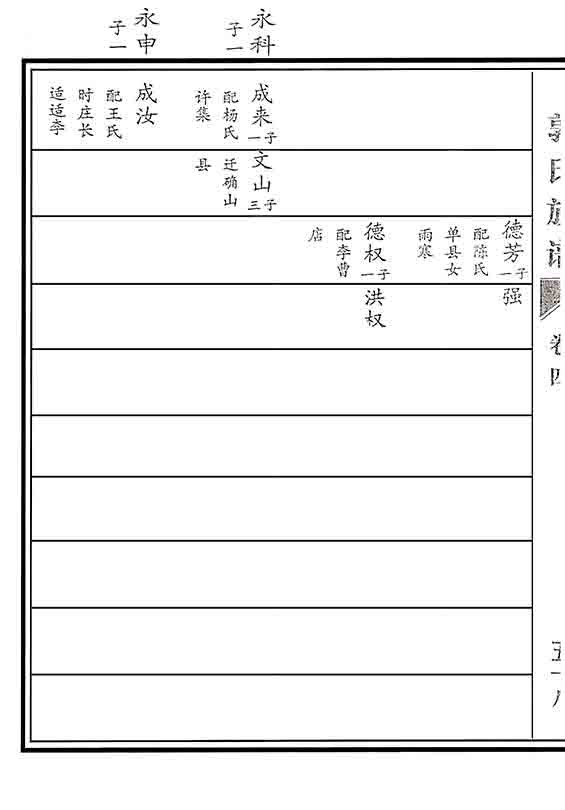 郭氏族谱
卷四
五十八
永科
子一
永申
子一
成来
一子
配杨氏
许集
成汝
配王氏
时庄长
适适李
文山
三子
迁确山
县
德芳
一子
配陈氏
单县女
雨寒
德权
一子
配李曹
店
强
洪权